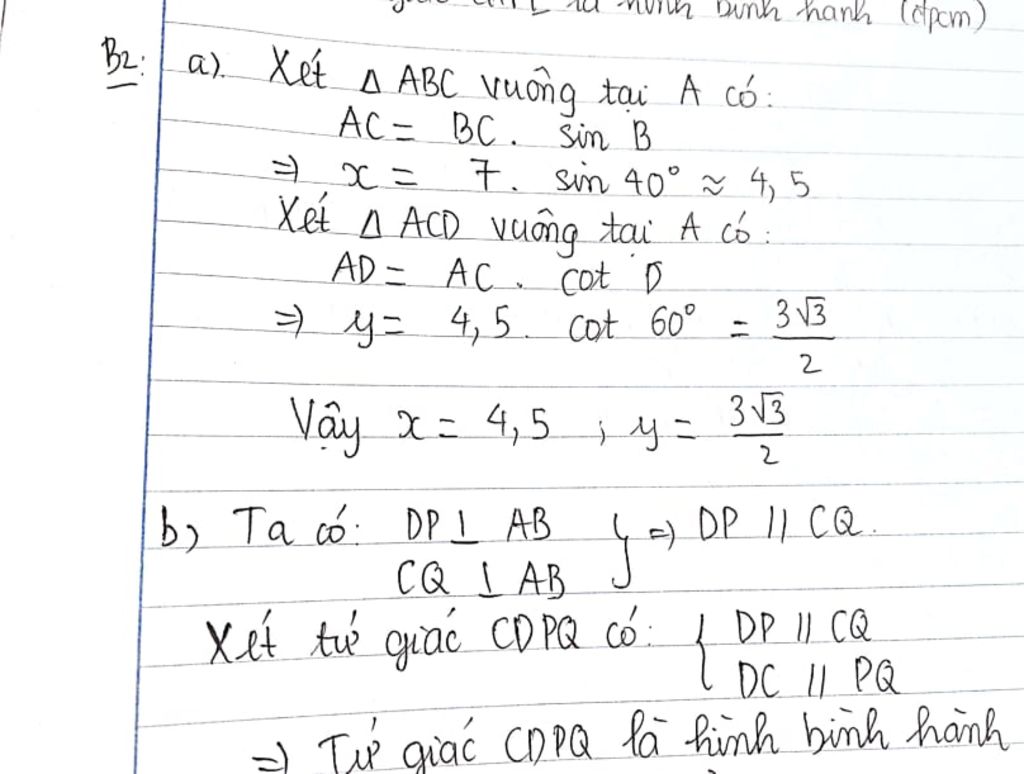 là hình bình hành (đpcm)
B2: a). Xét Δ ABC vuông tại A có:
AC = BC . sin B
=> x = 7. sin 40° ≈ 4,5
Xét Δ ACD vuông tại A có:
AD = AC . cot D
=> y = 4,5. cot 60° = 3√3/2
Vậy x = 4,5 ; y = 3√3/2
b) Ta có: DP ⊥ AB } => DP // CQ.
CQ ⊥ AB
Xét tứ giác CDPQ có: { DP // CQ
DC // PQ
=> Tứ giác CDPQ là hình bình hành